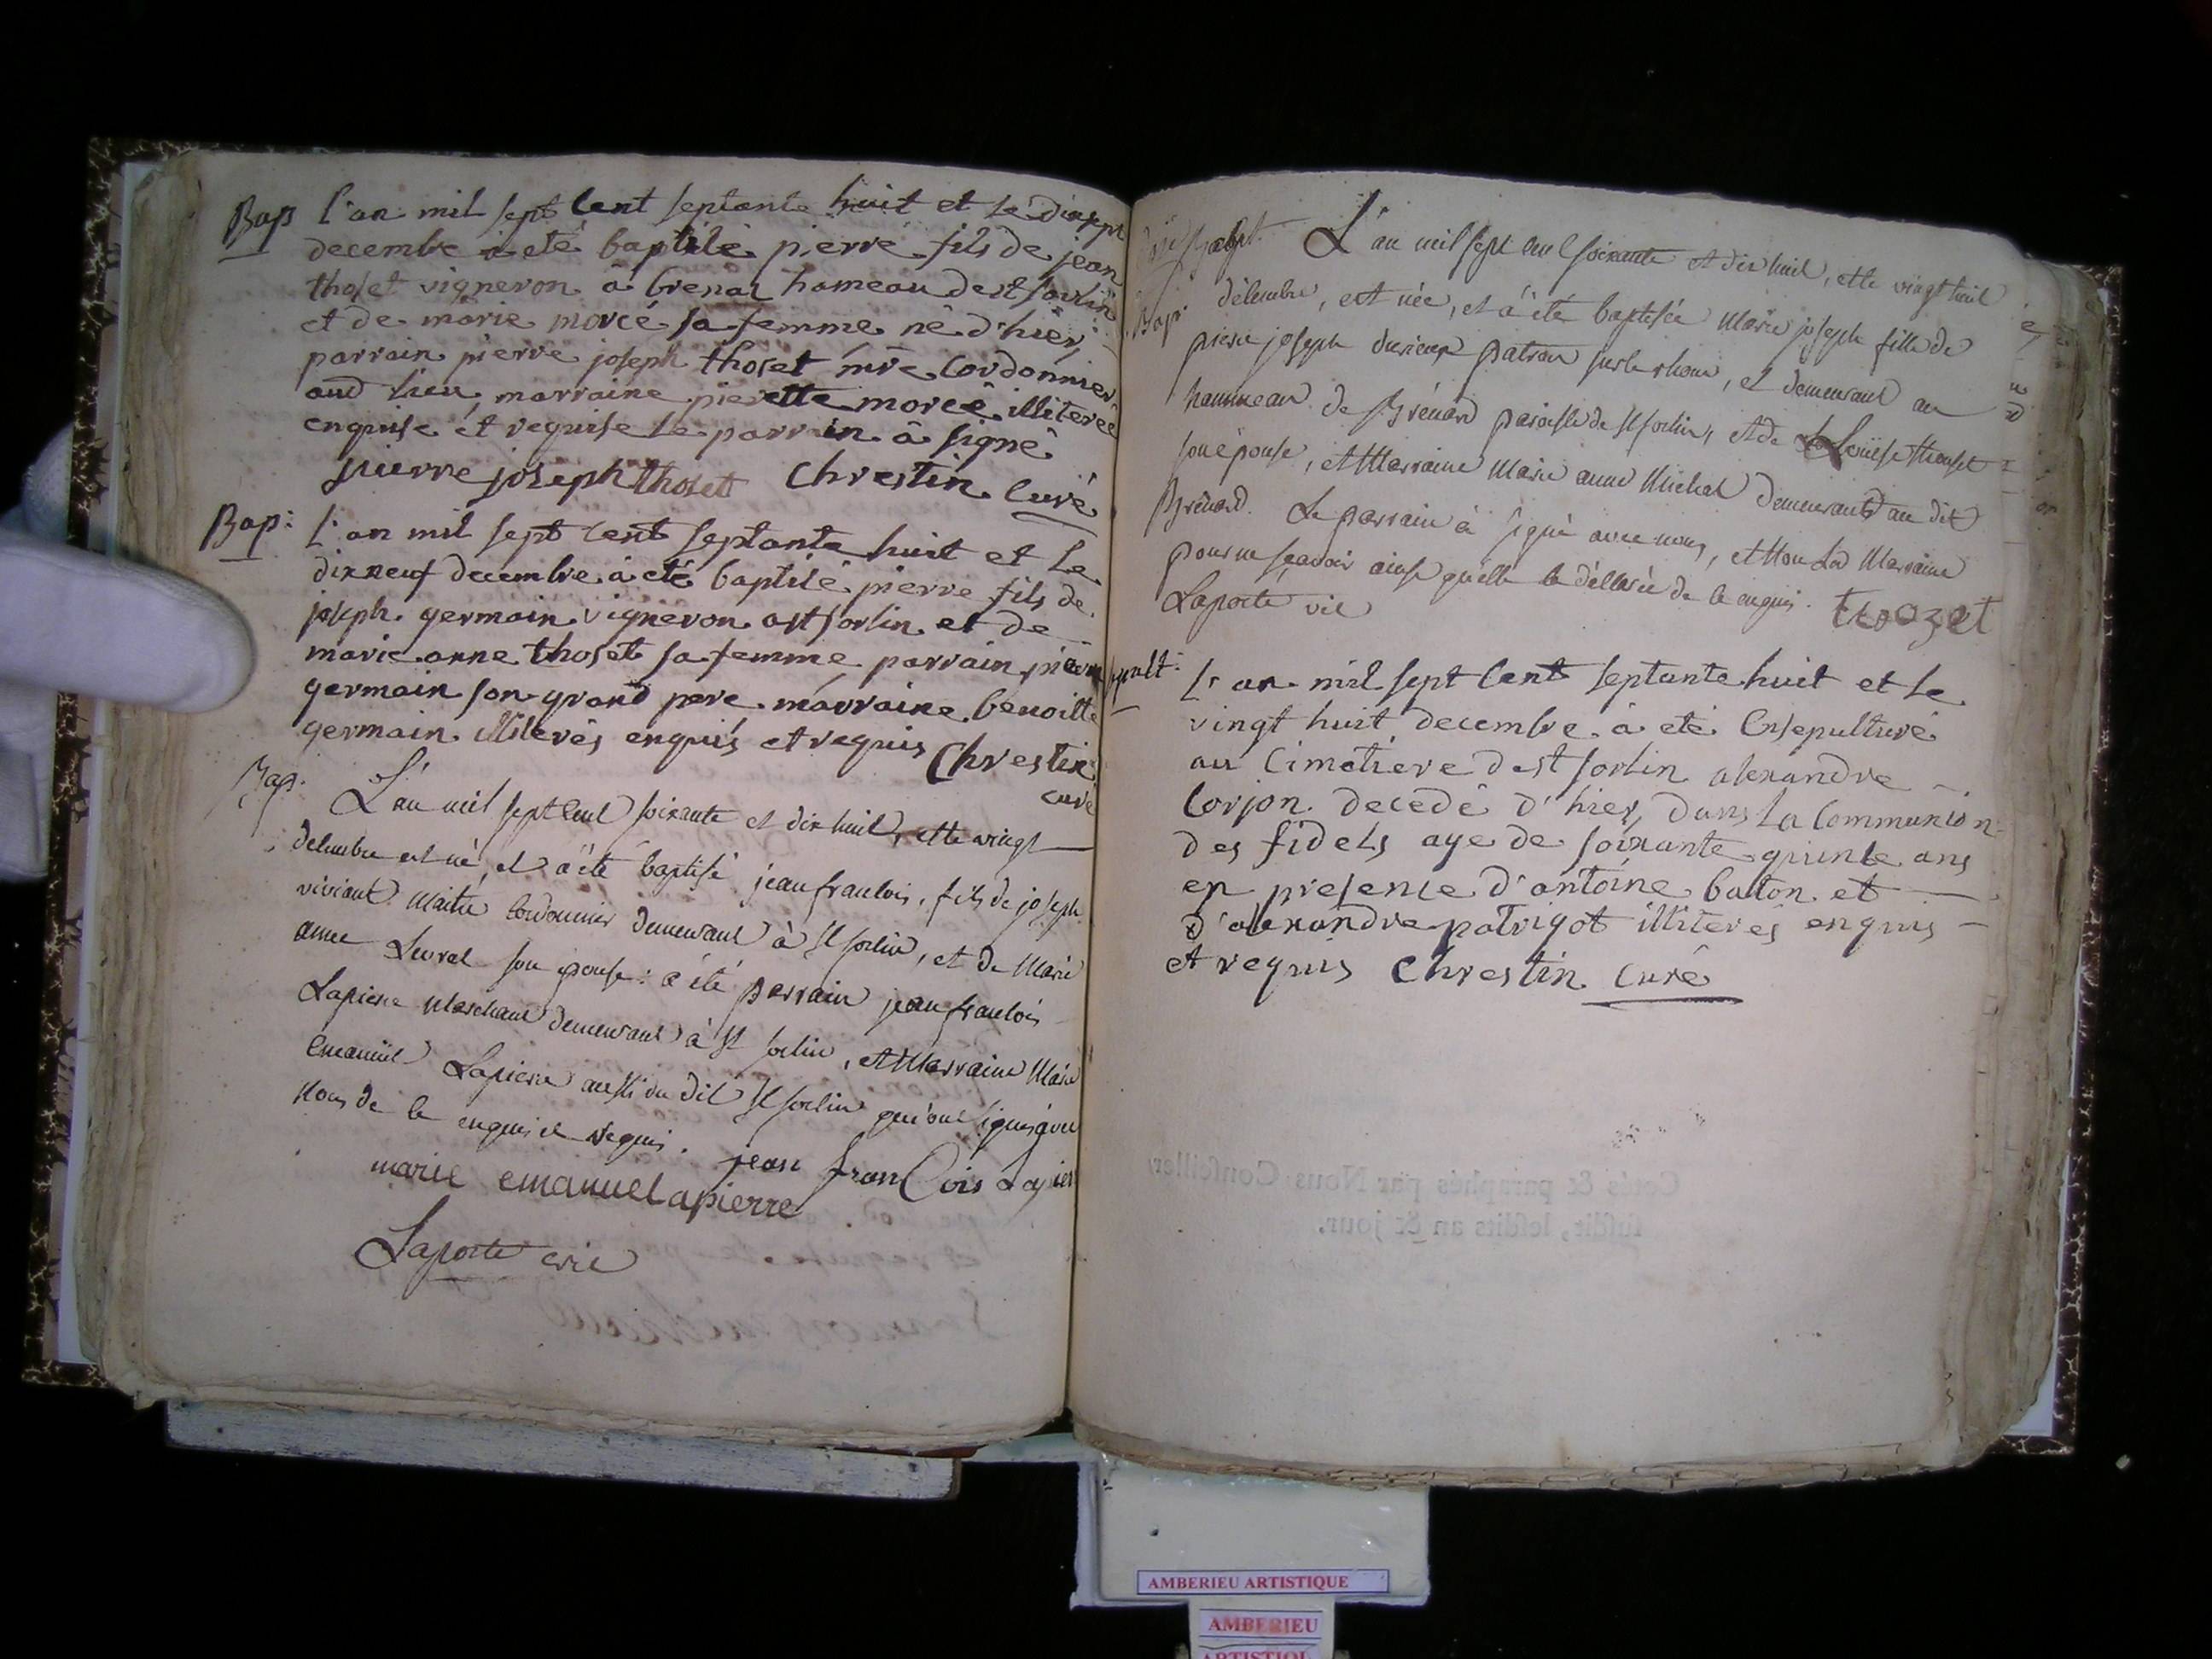 Bap l'an mil sept Cent septante huit et le dixsept
decembre a eté baptisé pierre fils de jean
thoset vigneron à brenaz hameau de st sorlin
et de marie morcé sa femme né d'hier,
parrain pierre joseph thoset mre Cordonnier
aud lieu, marraine pierrette morcé illiterée
enquise et requise le parrain à signé
pierre joseph thoset Chrestin Curé
Bap: l'an mil sept Cent septante huit et le
dixneuf decembre à eté baptisé pierre fils de
joseph germain vigneron a st sorlin et de
marie anne thoset sa femme parrain pierre
germain son grand pere marraine benoitte
germain illiterés enquis et requis Chrestin
curé
Bap. L'an mil sept Cent soixante et dix huit, et le vingt
décembre est né, et à été baptisé jean francois, fils de joseph
viviant Maitre Cordonnier demeurant à St sorlin, et de Marie
anne Levrat son epouse: a été parrain jean francois
Lapierre Marchand demeurant à St sorlin, et Marraine Marie
Emanüel Lapierre aussi du dit St sorlin qui ont signés avec
Nous de ce enquis et requis. jean franCois Lapier
marie emanuel apierre
Laporte vic
L'an mil sept Cent soixante et dix huit, et le vingt huit
Bap. décembre, est née, et à été baptisée Marie joseph fille de
pierre joseph patron sur le rhone, et demeurant au
hammeau de Brénard paroisse de St sorlin, et de Loüise thouset
son épouse, et Marraine Marie anne Michal demeurant au dit
Brénard. Le parrain à signé avec nous, et Non La Marraine
pour ne sçavoir ainsi qu'elle le déclarée de ce enquis. thozet
Laporte vic
sepult: l'an mil sept Cent septante huit et le
vingt huit decembre à eté Ensepulturé
au Cimetiere de st sorlin alexandre
Corjon decedé d'hier, dans La Communion
des fidels age de soixante quinze ans
en presence d'antoine balton et
d'alexandre patrigot illiterés enquis
et requis Chrestin Curé
Cotés & paraphés par Nous Conseiller
susdit, lesdits an & jour.
AMBERIEU ARTISTIQUE
AMBERIEU
ARTISTIQUE